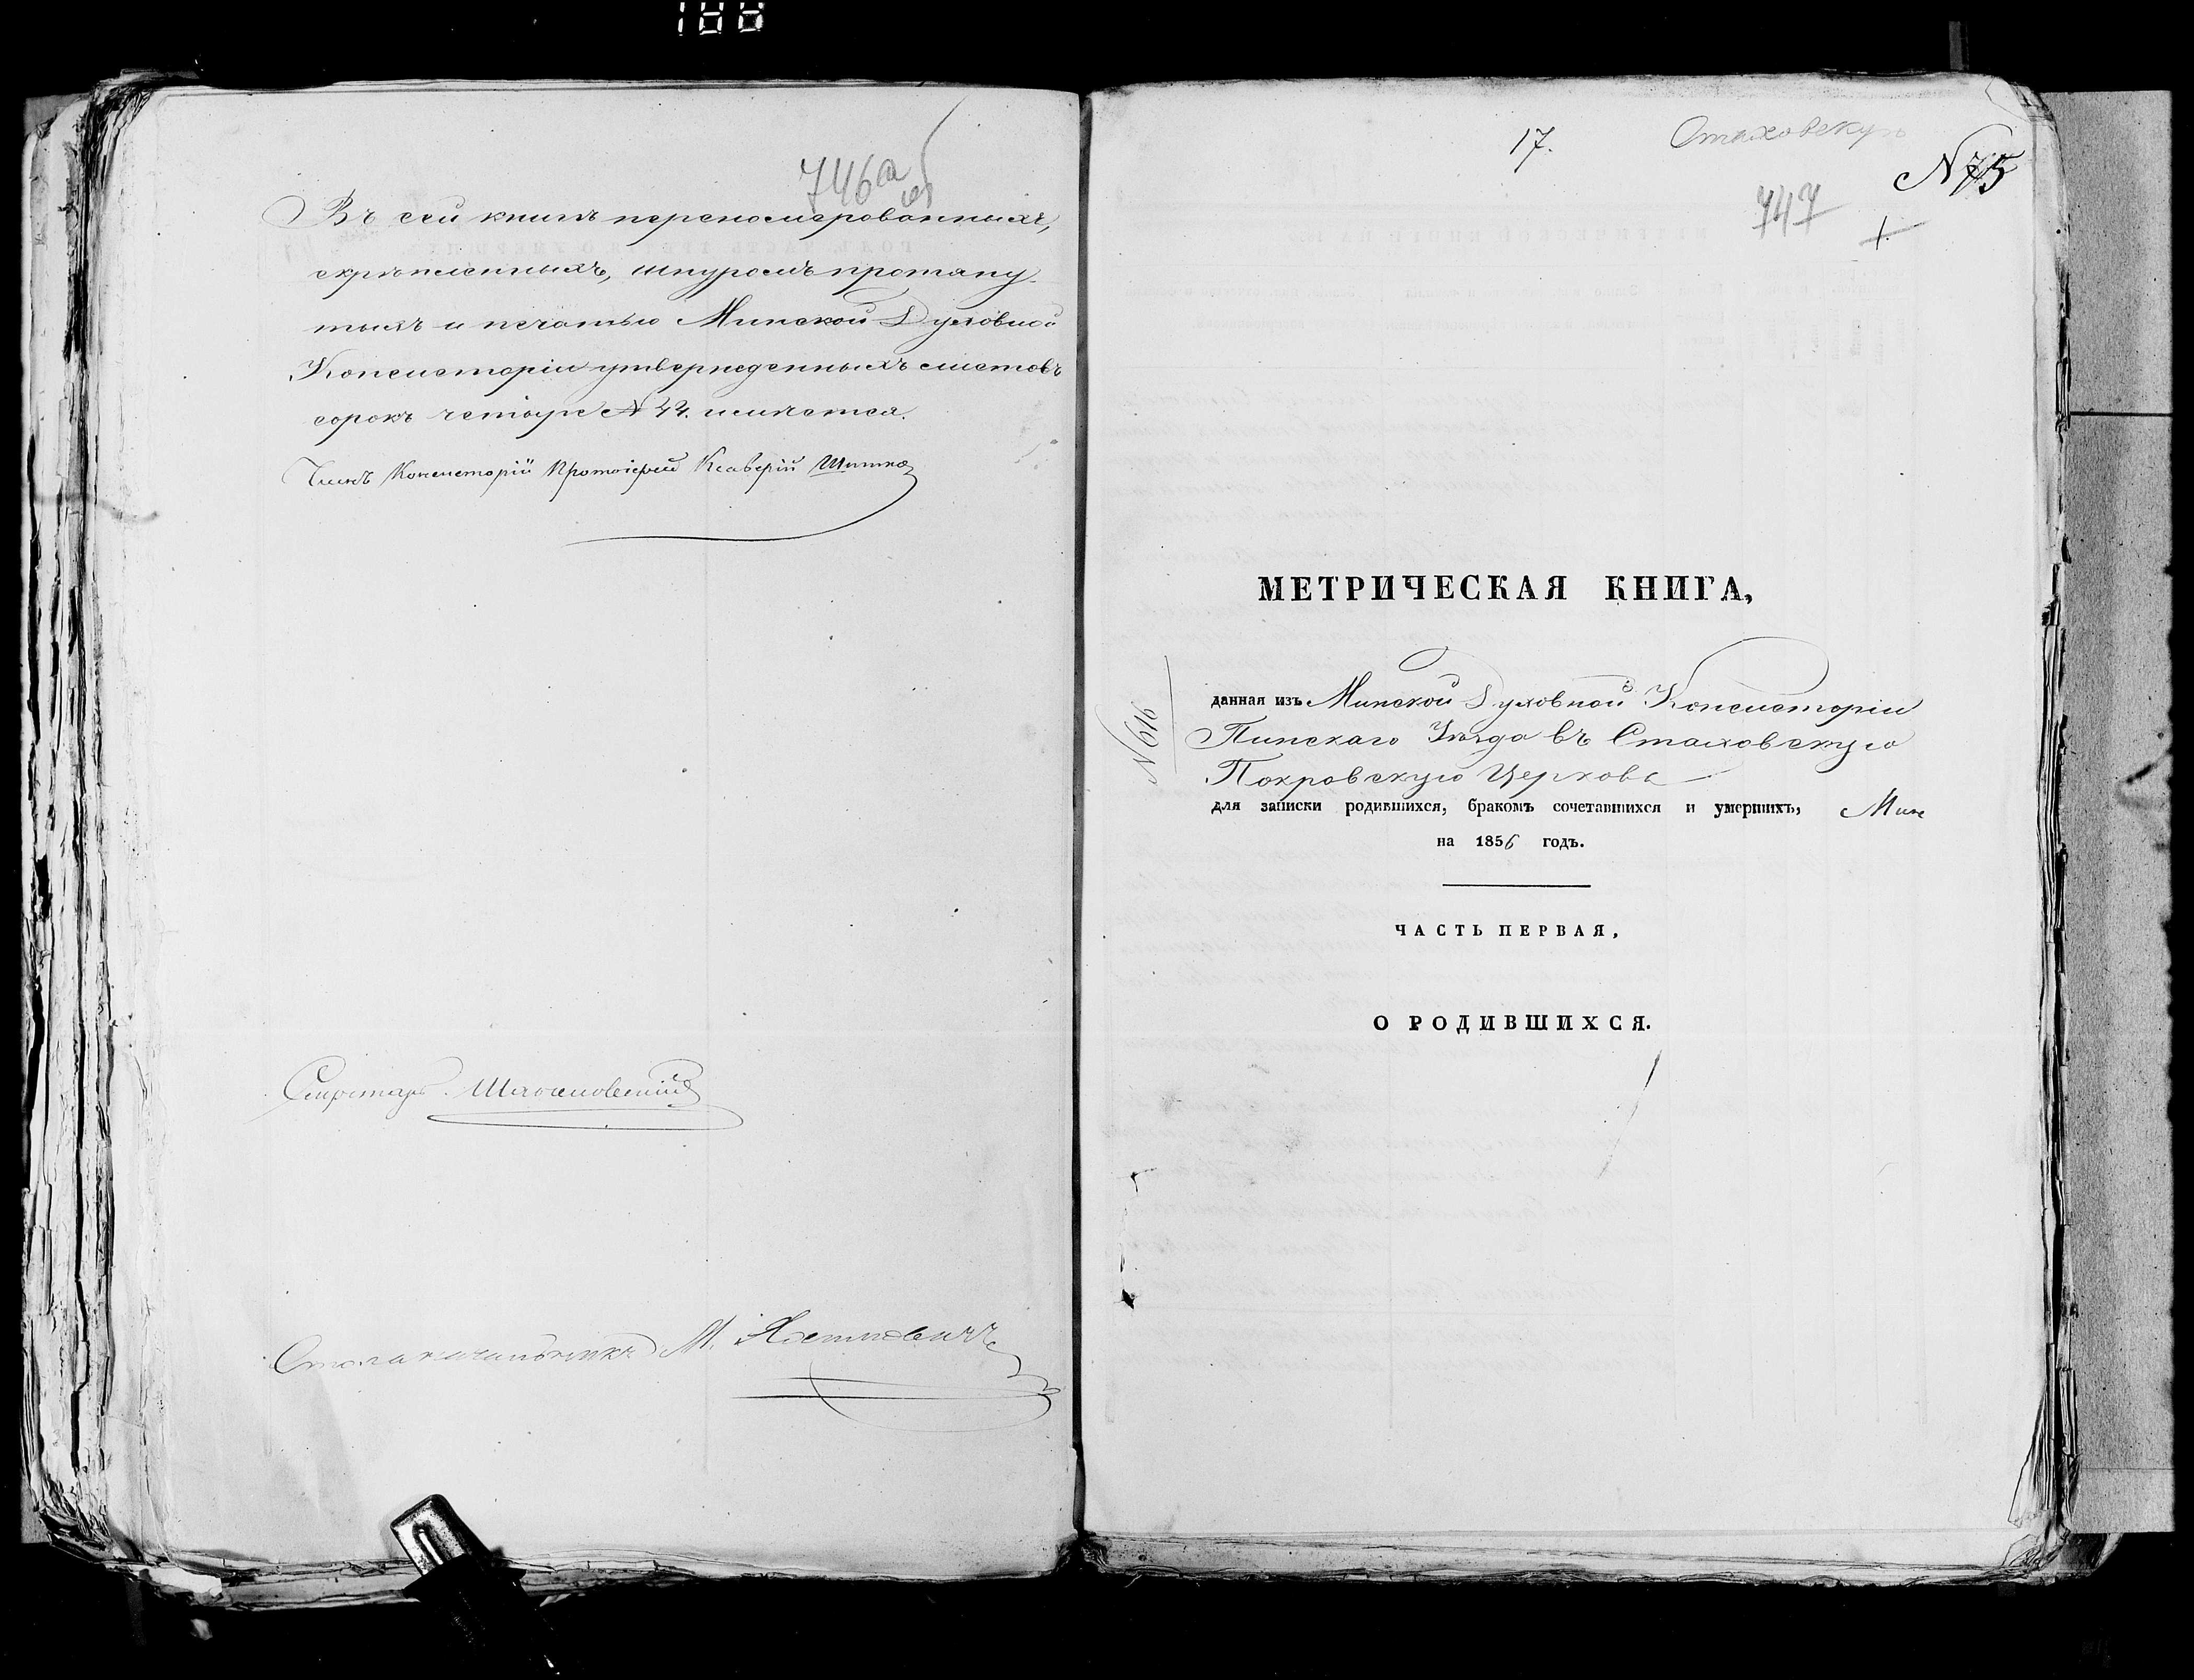 100
746а об
Въ сей книгѣ перенумерованныхъ,
скрѣпленныхъ, шнуромъ протяну
тыхъ и печатью Минской Духовной
Консисторіи утвержденныхъ листовъ
сорокъ четыре № 44. имѣется.
Членъ Консисторіи Протоіерей Ксаверій
Секретарь
Столоначальникъ М.
17.
Стаховскую
N 75
747
1.
МЕТРИЧЕСКАЯ КНИГА,
N 616
данная изъ Минской Духовной Консисторіи
Пинскаго Уѣзда въ Стаховскую
Покровскую Церковь
для записки родившихся, бракомъ сочетавшихся и умершихъ,
на 1856 годъ.
ЧАСТЬ ПЕРВАЯ,
О РОДИВШИХСЯ.